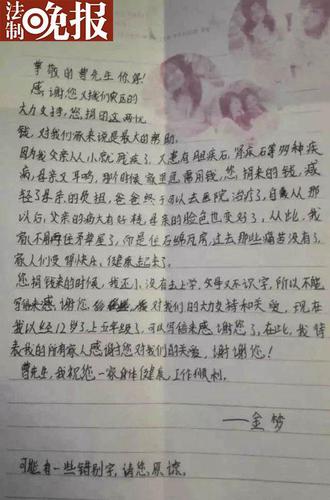 法制晚报
尊敬的曹先生你好!
感谢您对我们家庭的
大力支持,您捐图这两比
钱,对我们家来说是最大的帮助。
因为我父亲从小就残疾了,又患有胆床石,肾床石等两种疾
病,母亲又耳鸣,那时候家里急需用钱,您捐来的钱,减
轻了母亲的负担,爸爸终于可以去医院治疗了,自从
以后,父亲的病大有好转,母亲的脸色也变好了,从此,我
家不用再住茅草屋了,而是住石绵瓦房,过去那些痛苦没有了,
家人们变得快乐、健康起来了。
您捐钱来的时候,我还小,没有去上学,父母又不识字,所以不能
写信来感谢您,对我们的大力支持和关爱,现在
我以经12岁了,上五年级了,可以写信来感谢您了,在此,我代
表我的所有家人感谢您对我们的关爱,谢谢您!
曹先生,我祝您一家身体健康,工作顺利。
——金梦
可能有一些错别字,请您原谅。